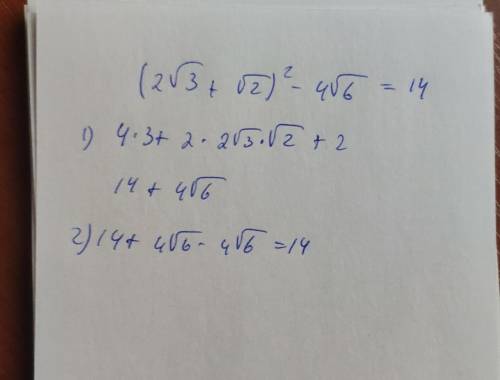 (2√3 + √2)² - 4√6 = 14
1) 4·3 + 2·2√3·√2 + 2
14 + 4√6
2) 14 + 4√6 - 4√6 = 14